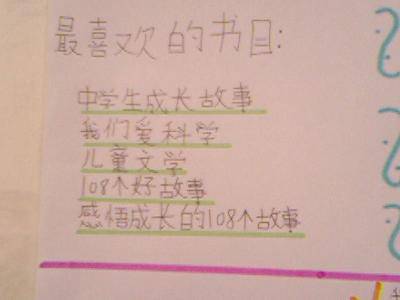 最喜欢的书目:
中学生成长故事
我们爱科学
儿童文学
108个好故事
感悟成长的108个故事